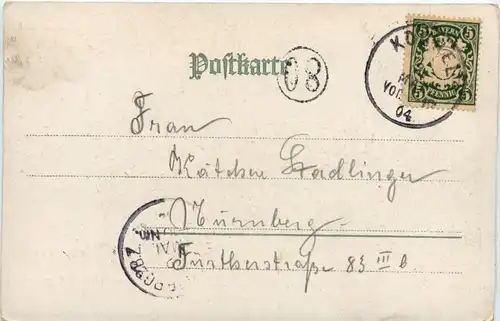 Postkarte
08
BAYERN
5 5
PFENNIG
5 5
04
Frau
Kätchen Stadlinger
Nürnberg
Fürtherstraße 83 III b.